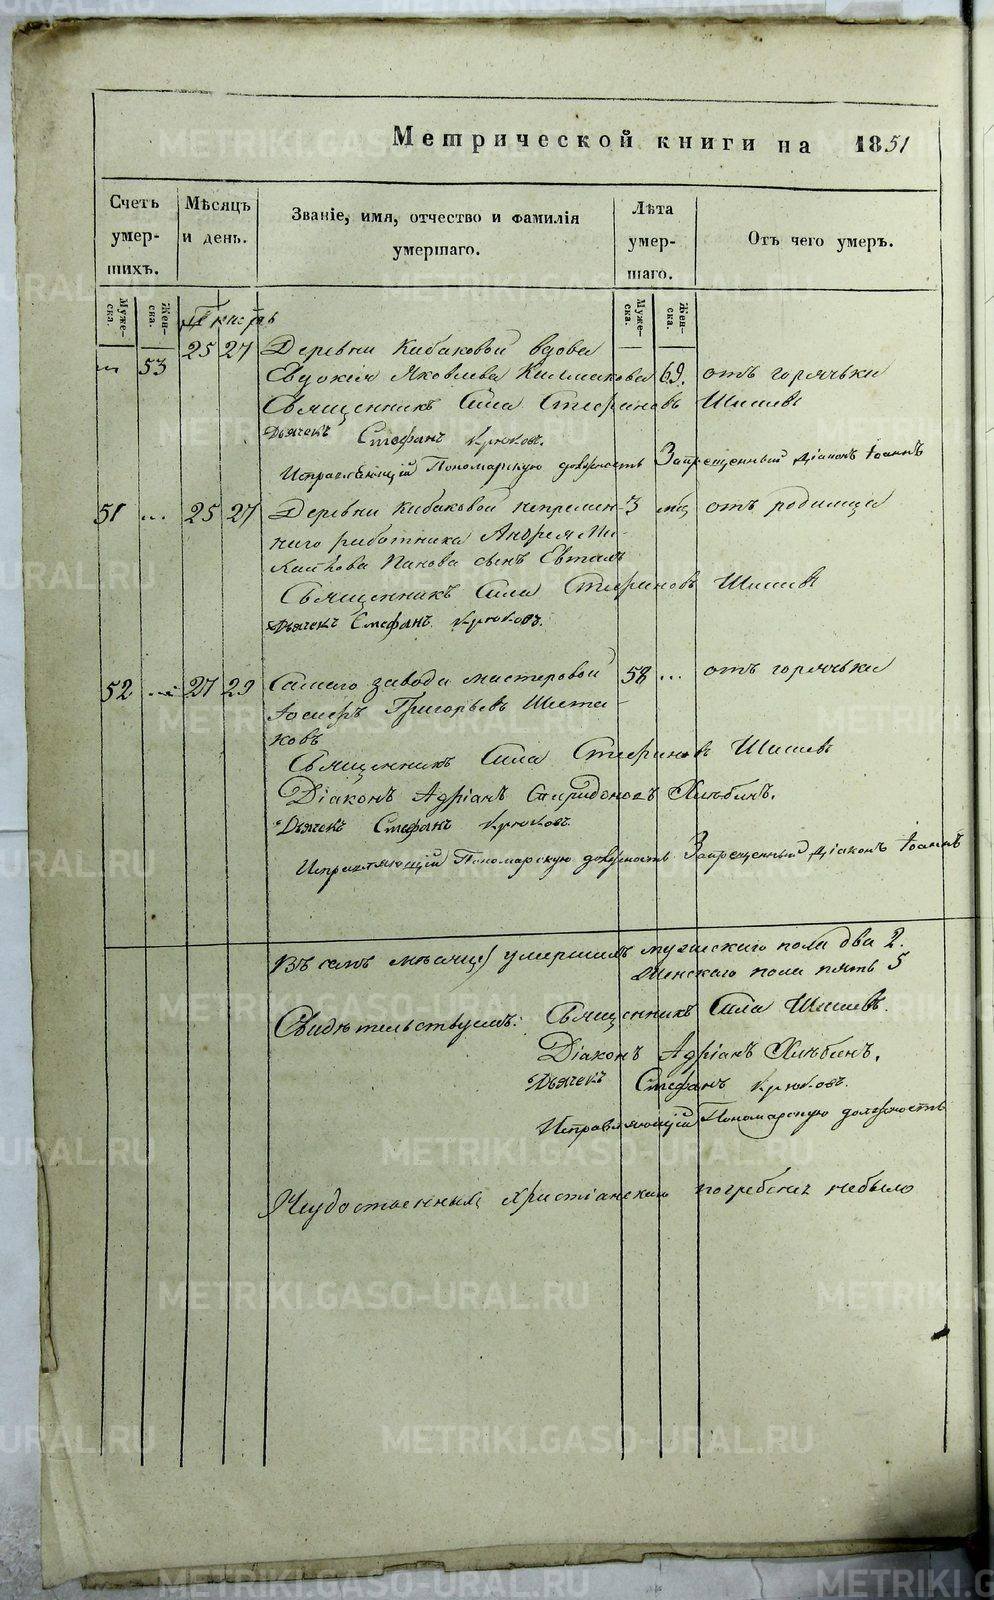 Метрической книги на 1851
Счетъ умер- шихъ.
Мѣсяцъ и день.
Званіе, имя, отчество и фамилія умершаго.
Лѣта умер- шаго.
Отъ чего умеръ.
Муже- ска.
Жен- ска.
Муже- ска.
Жен- ска.
25 27 Деревни Кибаковой вдова
53 Евдокія Яковлева 69. отъ горячьки
Священникъ Сила Шишевъ
Дьячекъ Стефанъ Крюковъ.
Исправляющій Пономарскую должность Запрещенный Діаконъ Іоаннъ
51 ... 25 27 Деревни Кибаковой непремен- 3 мѣ отъ родимца
наго работника Андрея Ми-
Панова сынъ
Священникъ Сила Шишевъ
Дьячекъ Стефанъ Крюковъ.
52 ... 27 29 Самаго завода мастеровой 58 ... отъ горячьки
Григорьевъ Шеста-
ковъ
Священникъ Сила Шишевъ
Діаконъ Адріанъ Спиридоновъ Хлѣбинъ.
Дьячекъ Стефанъ Крюковъ.
Исправляющій Пономарскую должность Запрещенный Діаконъ Іоаннъ
Въ семъ мѣсяцѣ умершихъ мужескаго пола два 2.
Женскаго пола пять 5
Свидѣтельствуемъ: Священникъ Сила Шишевъ.
Діаконъ Адріанъ Хлѣбинъ.
Дьячекъ Стефанъ Крюковъ.
Исправляющій Пономарскую должность
христіанскаго погребенія небыло
METRIKI.GASO-URAL.RU